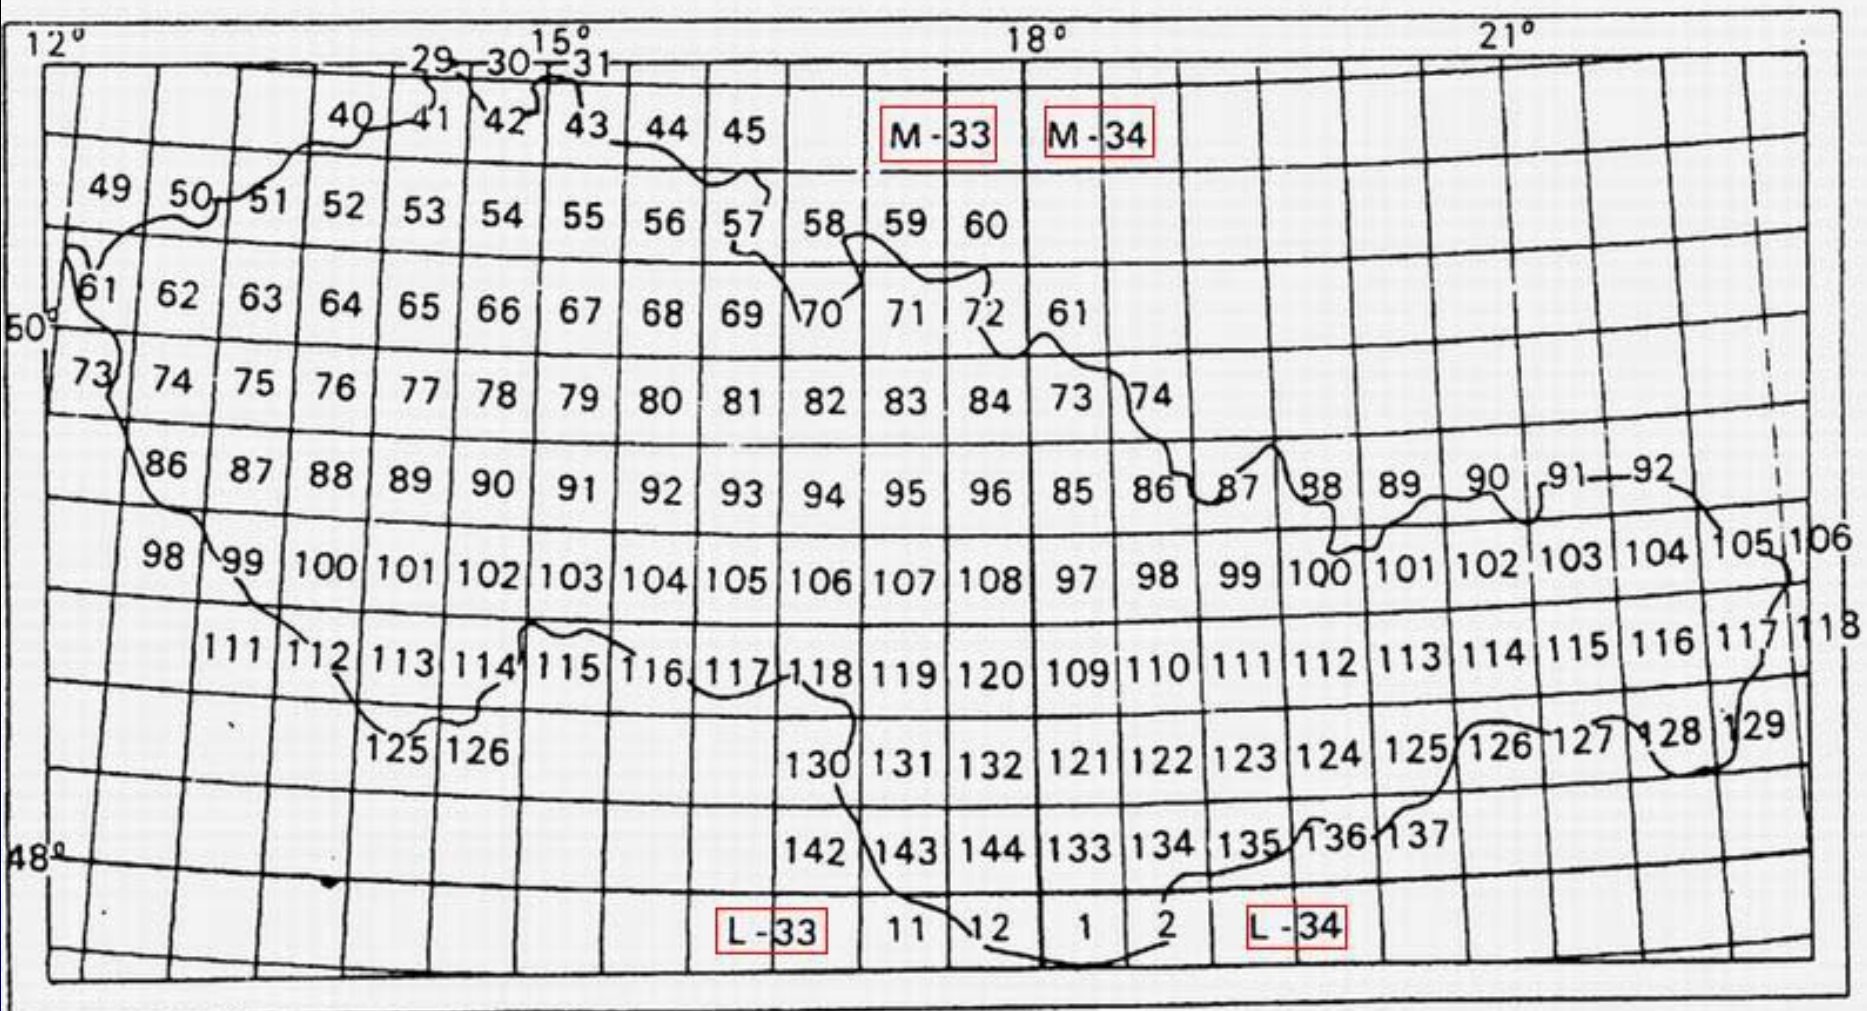 12° 15° 18° 21°
29 30 31
40 41 42 43 44 45 M-33 M-34
49 50 51 52 53 54 55 56 57 58 59 60
61 62 63 64 65 66 67 68 69 70 71 72 61
50°
73 74 75 76 77 78 79 80 81 82 83 84 73 74
86 87 88 89 90 91 92 93 94 95 96 85 86 87 88 89 90 91 92
98 99 100 101 102 103 104 105 106 107 108 97 98 99 100 101 102 103 104 105 106
111 112 113 114 115 116 117 118 119 120 109 110 111 112 113 114 115 116 117 118
125 126 130 131 132 121 122 123 124 125 126 127 128 129
48° 142 143 144 133 134 135 136 137
L-33 11 12 1 2 L-34